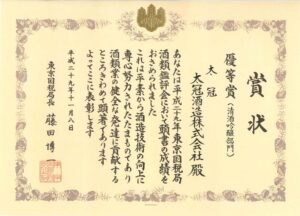 賞状
優等賞(清酒吟醸部門)
太冠
太冠酒造株式会社殿
あなたは平成二十九年東京国税局
酒類鑑評会において頭書の成績を
おさめられました
これは平素から酒造技術の向上に
専心努力されたたまものであり
酒類業の健全な発達に貢献する
ところきわめて顕著であります
よってここに表彰します
平成二十九年十一月八日
東京国税局長 藤田博一